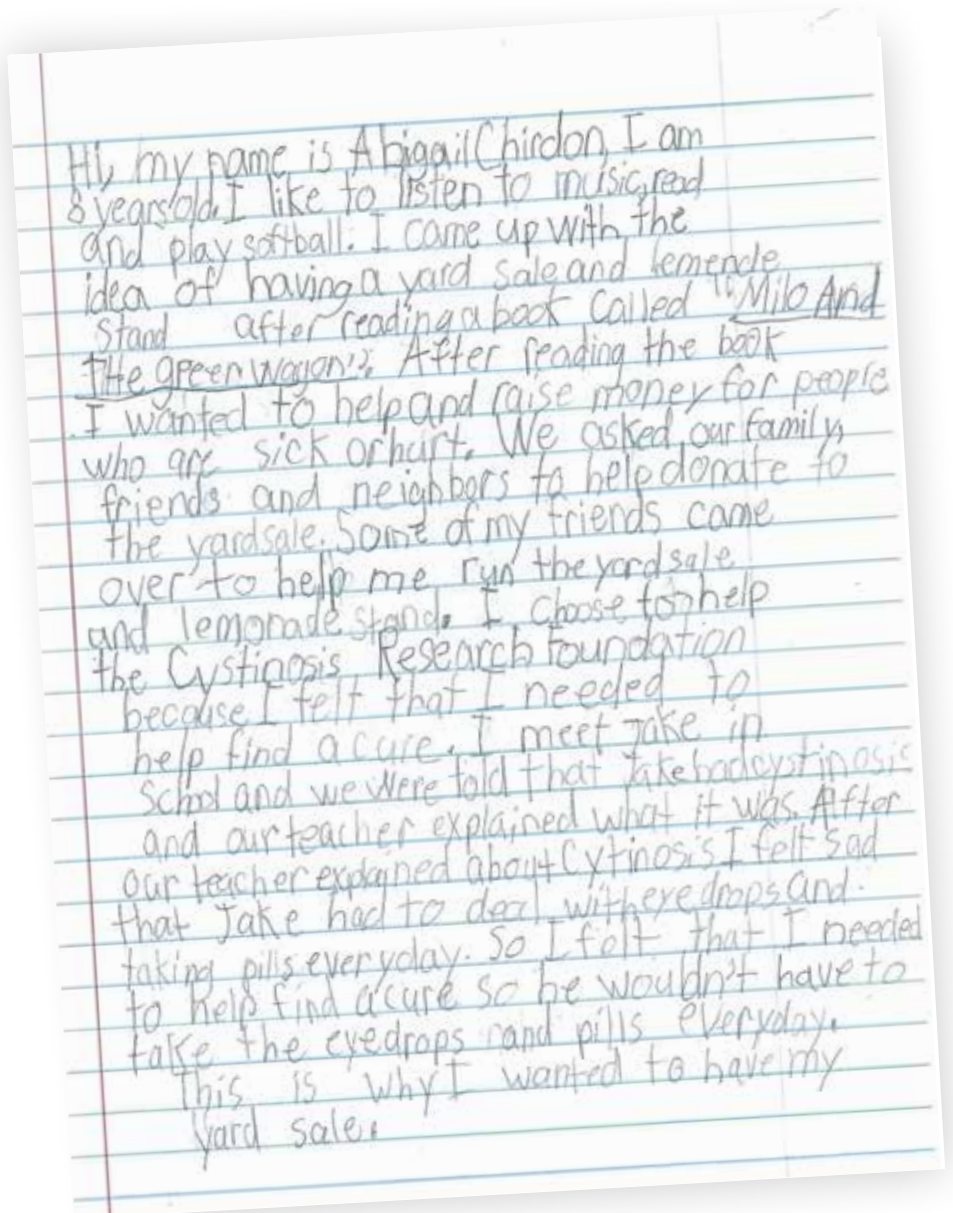 Hi, my name is Abigail Chirdon, I am
8 years old. I like to listen to music, read
and play softball. I came up with the
idea of having a yard sale and lemende
stand after reading a book called "Milo And
THe green wagon". After reading the book
I wanted to help and raise money for people
who are sick or hurt. We asked our family,
friends and neighbors to help donate to
the yardsale. Some of my friends came
over to help me run the yard sale
and lemonade stand. I choose to help
the Cystinosis Research Foundation
because I felt that I needed to
help find a cure. I meet Jake in
school and we were told that Jake had cystinosis
and our teacher explained what it was. After
our teacher explained about Cytinosis I felt sad
that Jake had to deal with eye drops and
taking pills everyday. So I felt that I needed
to help find a cure so he wouldn't have to
take the eyedrops and pills everyday.
This is why I wanted to have my
yard sale.